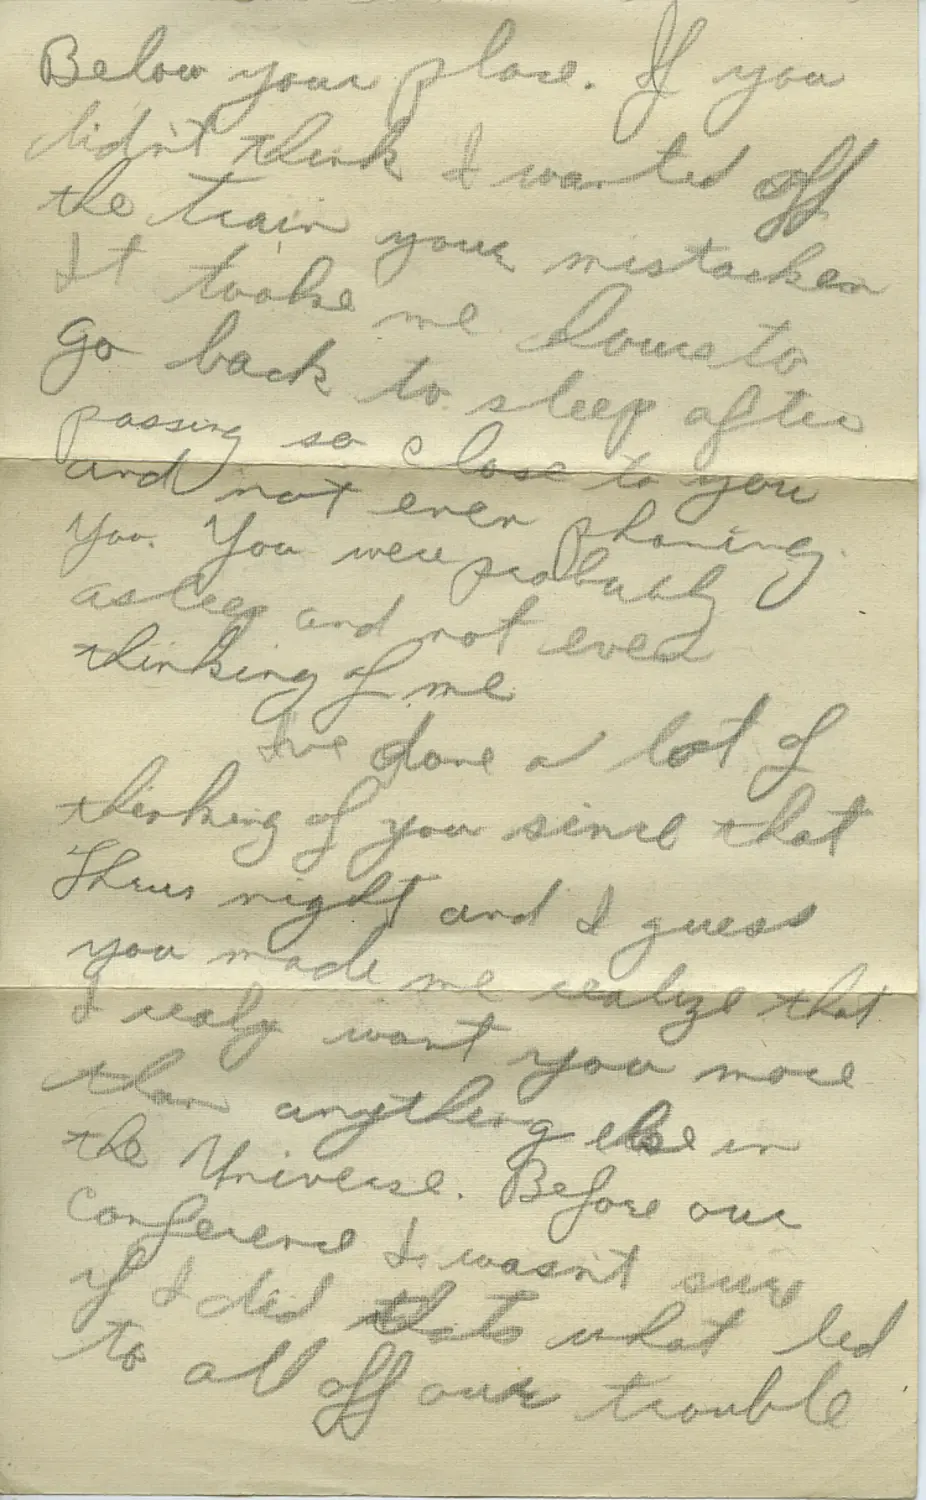 Below your place. If you
didn't think I wanted off
the train your mistacken
It tooke me hours to
go back to sleep after
passing so close to you
and not even phoning
you. You were probably
asleep and not even
thinking of me
I've done a lot of
thinking of you since that
Thurs night and I guess
you made me realize that
I realy want you more
than anything else in
the Universe. Before our
conference I wasn't sure
if I did thats what led
to all off our trouble